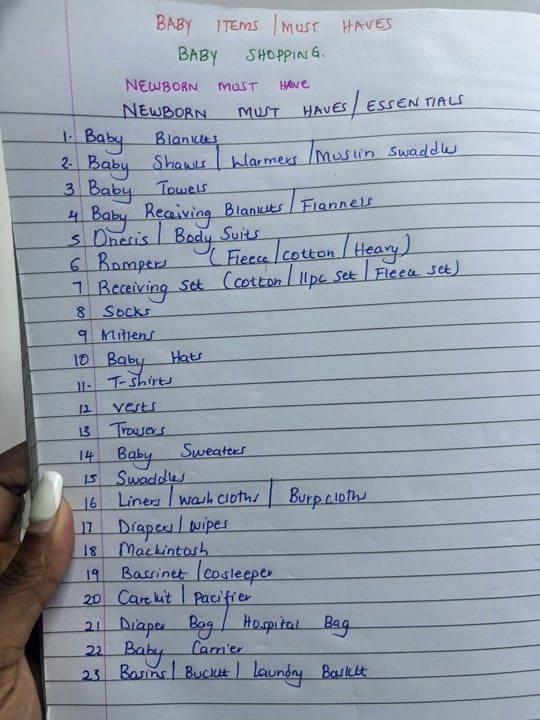 BABY ITEMS / MUST HAVES
BABY SHOPPING.
NEWBORN MUST HAVE
NEWBORN MUST HAVES / ESSENTIALS
1. Baby Blankets
2. Baby Shawls / Warmers / Muslin swaddle
3 Baby Towels
4 Baby Receiving Blankets / Flannels
5 Onesis / Body Suits
6 Rompers (Fleece / cotton / Heavy)
7 Receiving set (cotton / 11pc set / Fleece set)
8 Socks
9 Mittens
10 Baby Hats
11- T-shirts
12 vests
13 Trousers
14 Baby Sweaters
15 Swaddles
16 Liners / wash cloths / Burp cloths
17 Diapers / wipes
18 Mackintosh
19 Bassinet / cosleeper
20 Care kit / pacifier
21 Diaper Bag / Hospital Bag
22 Baby Carrier
23 Basins / Bucket / Laundry Basket